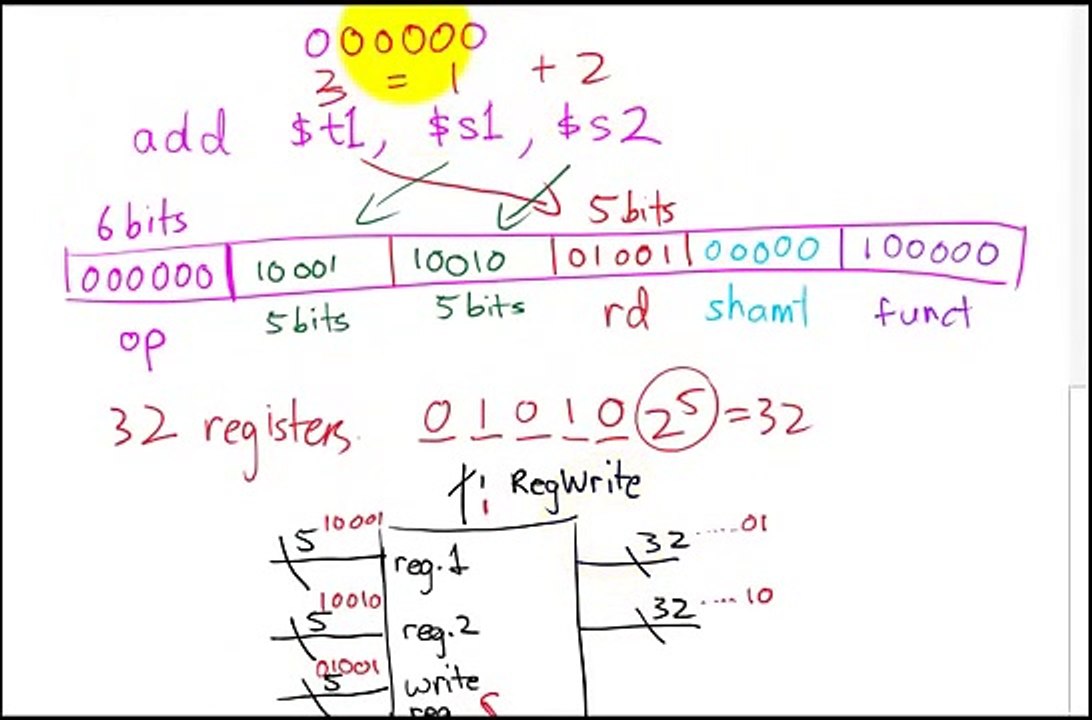 000000
3 = 1 + 2
add $t1, $s1, $s2
6 bits 5 bits
000000 10001 10010 01001 00000 100000
op 5bits 5 bits rd shamt funct
32 registers. 0 1 0 1 0 2^5 = 32
1 RegWrite
5 10001 reg.1 32 .....01
5 10010 reg.2 32 ....10
5 01001 write
reg